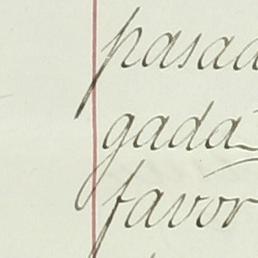 pasad
gada
favor